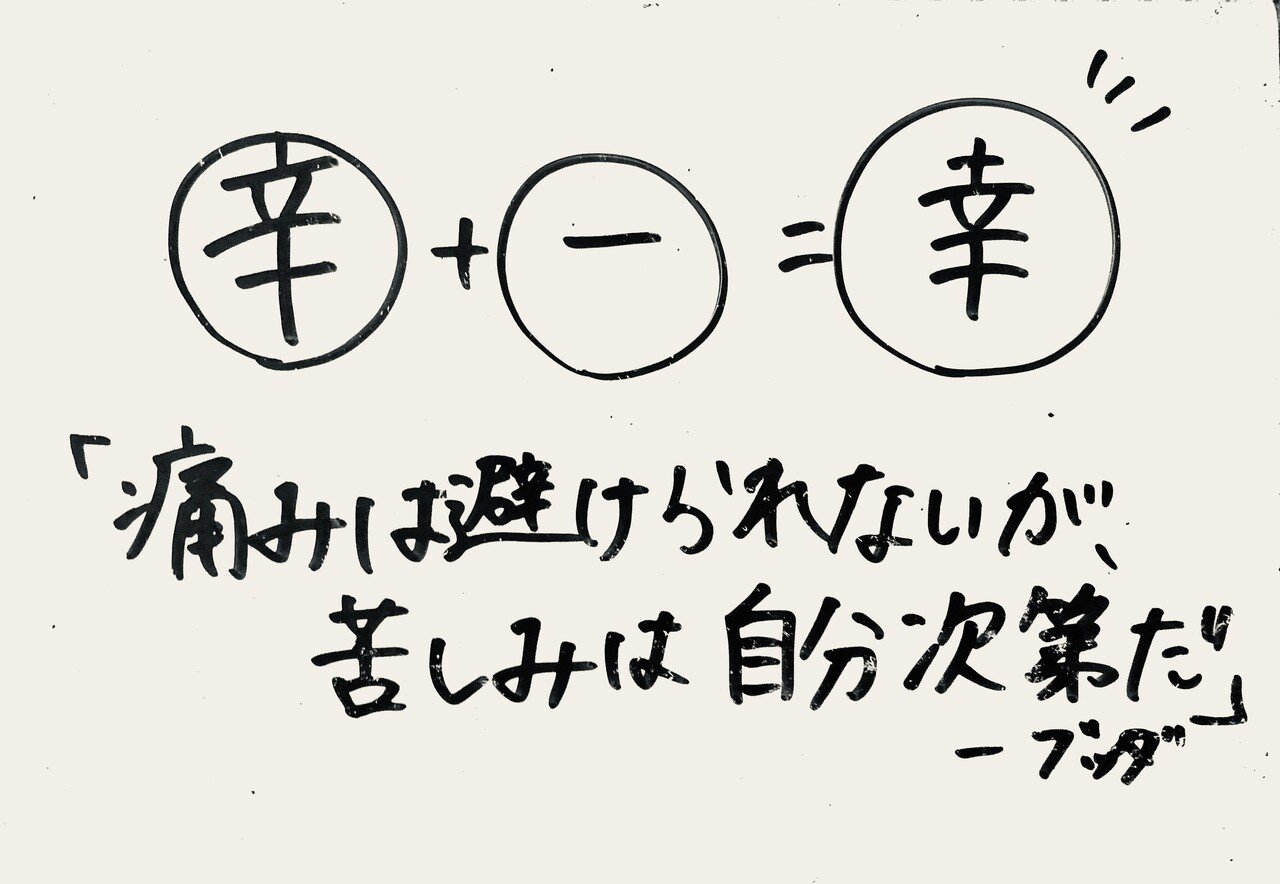 辛 + 一 = 幸
「痛みは避けられないが、
苦しみは自分次第だ」
ーブッダ